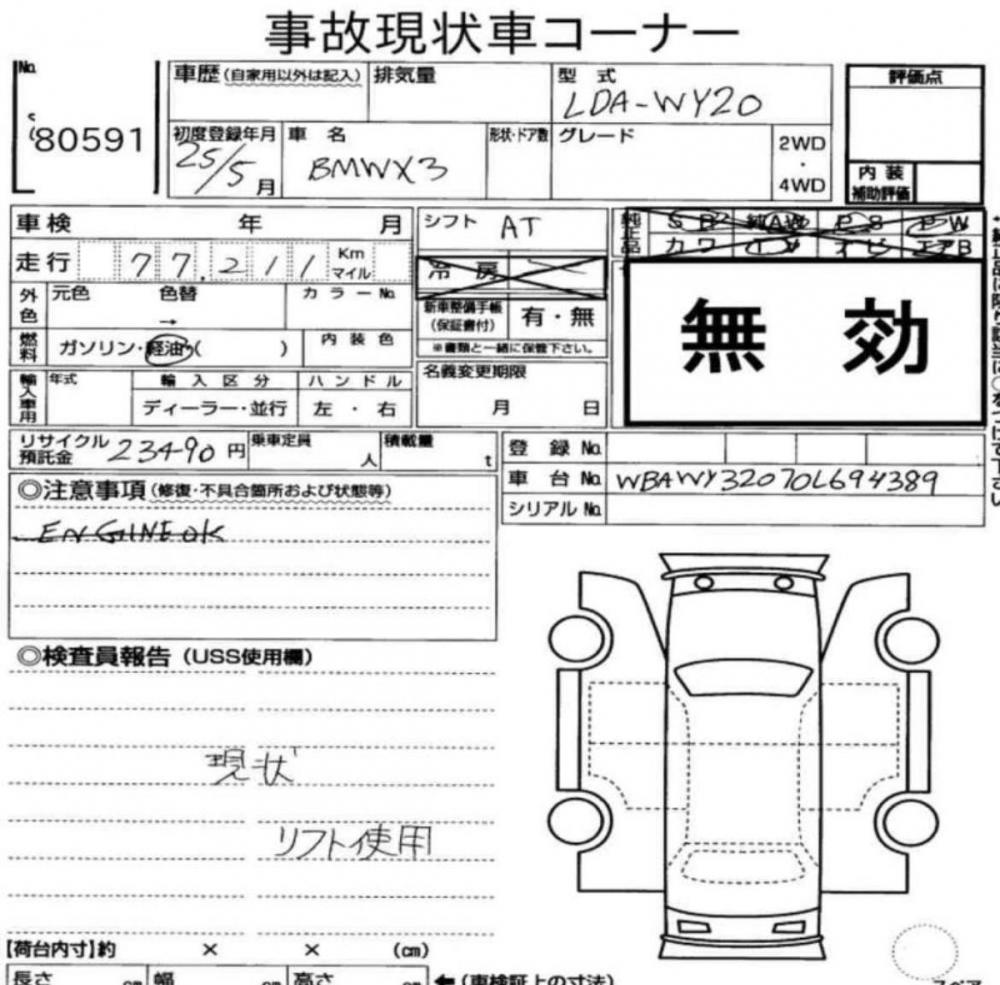 事故現状車コーナー
No.
80591
車歴(自家用以外は記入)
排気量
型 式
LDA-WY20
評価点
初度登録年月
25/5月
車 名
BMWX3
形状・ドア数
グレード
2WD
・
4WD
内 装
補助評価
車検 年 月
シフト AT
純正品
SR 純AW PS PW
カワ TV ナビ エアB
走行 77,211 Km
マイル
冷 房
無 効
外色
元色 色替
→
カラーNo.
新車整備手帳
(保証書付)
有・無
※書類と一緒に保管下さい。
燃料
ガソリン・軽油・( )
内 装 色
輸入車用
年式
輸 入 区 分
ハ ン ド ル
ディーラー・並行
左 ・ 右
名義変更期限
月 日
リサイクル
預託金
23490 円
乗車定員
人
積載量
t
登 録 No.
車 台 No. WBAWY32070L694389
シリアル No.
◎注意事項(修復・不具合箇所および状態等)
ENGINE OK
◎検査員報告(USS使用欄)
現状
リフト使用
【荷台内寸】約 × × (cm)
長さ cm 幅 cm 高さ cm ←(車検証上の寸法)
スペア